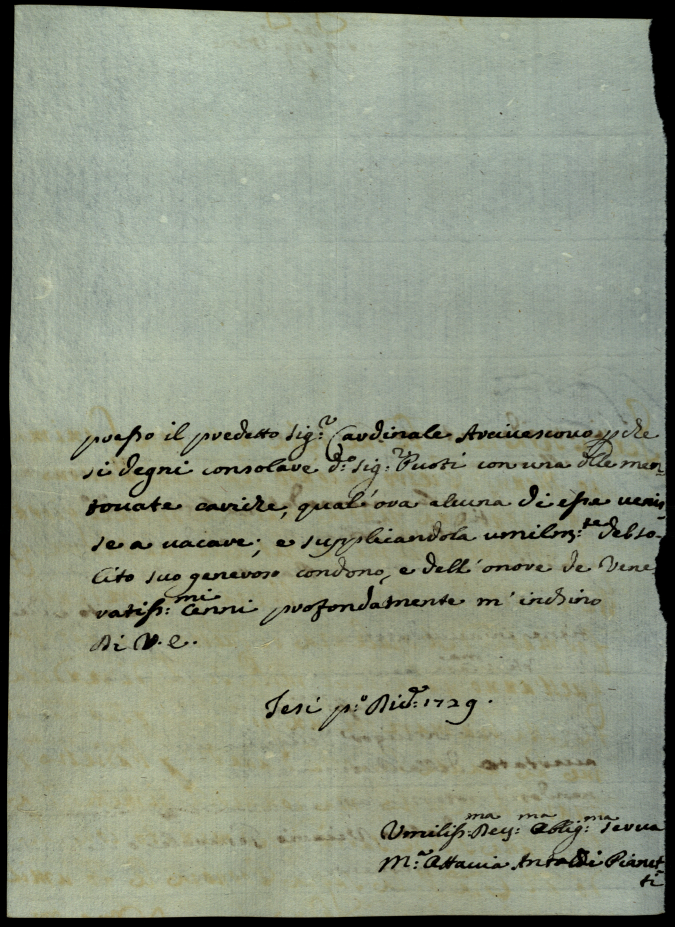 presso il predetto Sig.r Cardinale Arcivescovo, pche
si degni consolare d.o Sig.r Puoti con una dlle men-
tovate cariche, qual'ora alcuna di esse venis-
se a vacare; e supplicandola umilm.te del so-
lito suo generoso condono, e dell'onore de Vene-
ratiss.mi Cenni profondamente m'inchino
Di V. E.
Jesi p.o Dic.e 1729.
Umiliss.ma Dev.ma Oblig.ma Serva
M.a Ottavia Antaldi Pianet-
ti